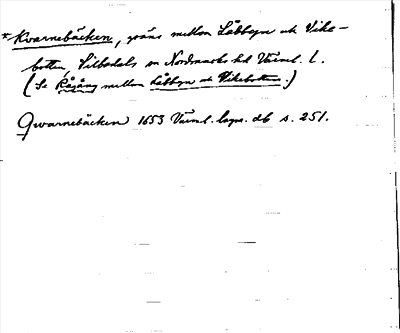 *Kvarnebäcken, gräns mellan Låbbyn och Vike-
botten Silbodals sn Nordmarks hd Värml. l.
(Se Rågång mellan Låbbyn och Vikebotten.)
Qwarnebäcken 1653 Värml. lagm. db s. 251.